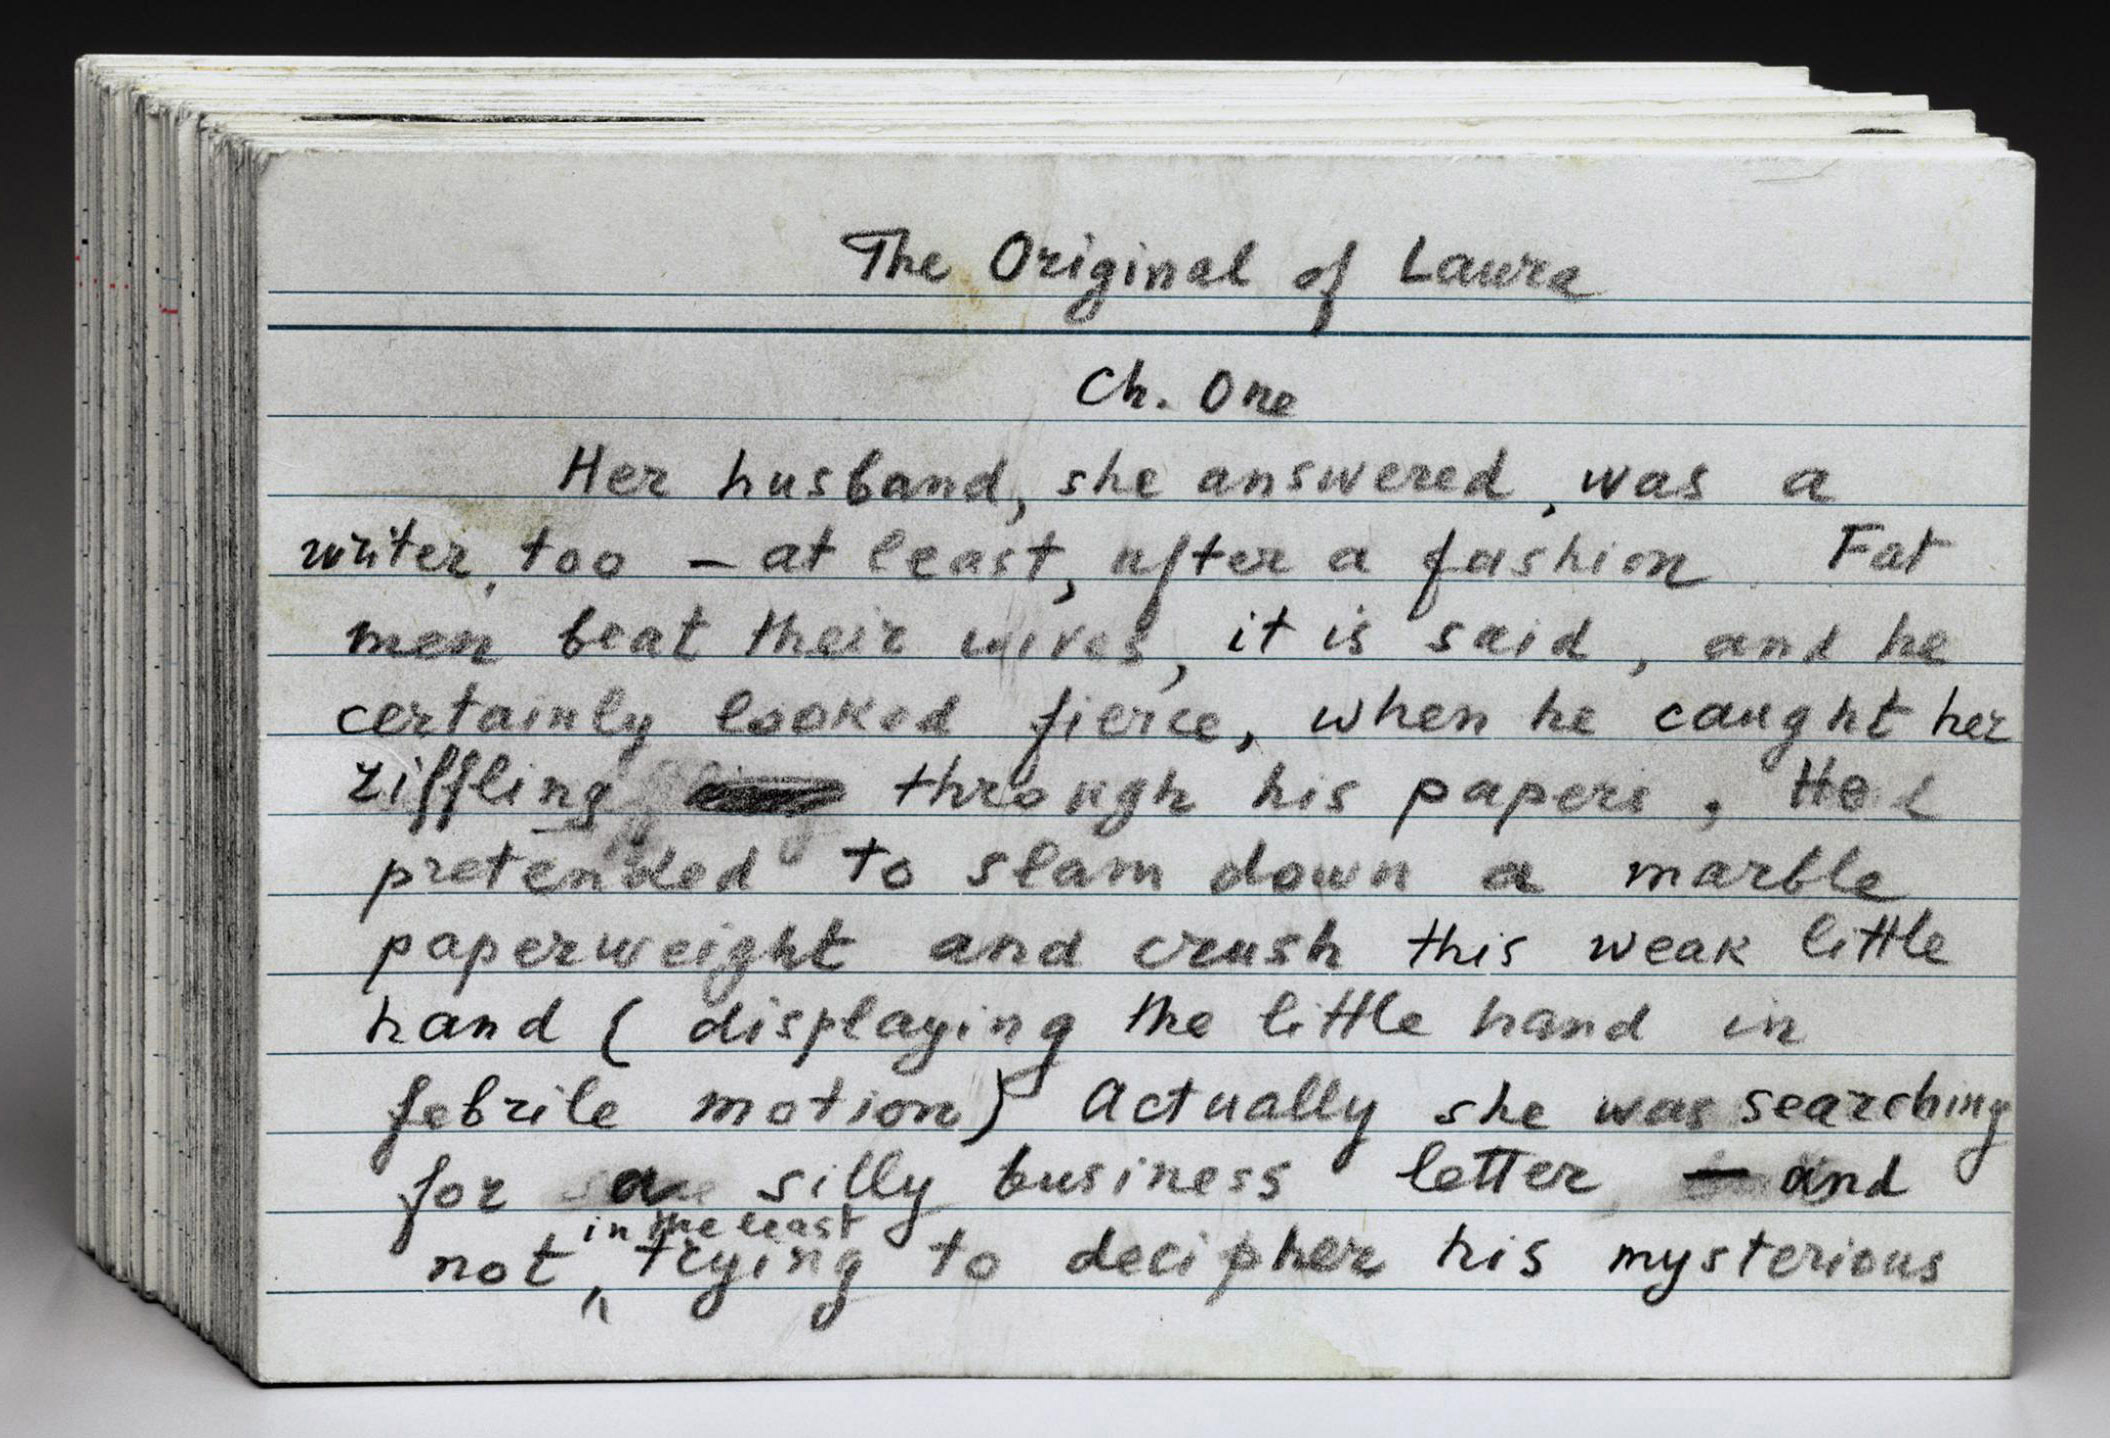 The Original of Laura
Ch. One
Her husband, she answered, was a
writer, too – at least, after a fashion. Fat
men beat their wives, it is said, and he
certainly looked fierce, when he caught her
riffling through his papers. He
pretended to slam down a marble
paperweight and crush this weak little
hand (displaying the little hand in
febrile motion) Actually she was searching
for a silly business letter – and
in the least
not ^ trying to decipher his mysterious